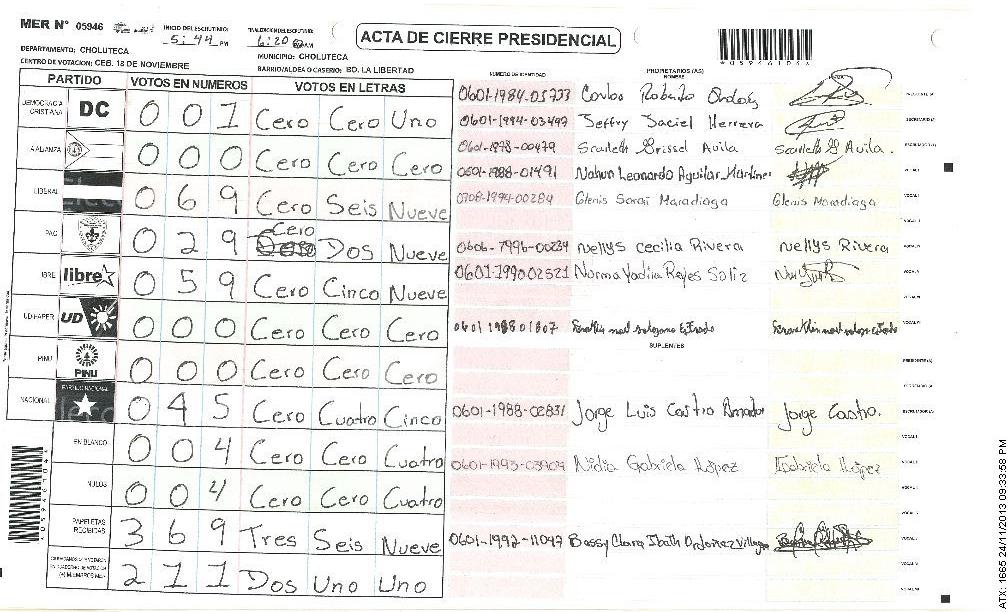 MER N° 05946
INICIO DEL ESCRUTINIO: 5:44 PM
FINALIZACION DEL ESCRUTINIO: 6:20 AM
ACTA DE CIERRE PRESIDENCIAL
*059461064*
DEPARTAMENTO: CHOLUTECA
MUNICIPIO: CHOLUTECA
CENTRO DE VOTACION: CEB. 18 DE NOVIEMBRE
BARRIO/ALDEA O CASERIO: BO. LA LIBERTAD
PARTIDO VOTOS EN NUMEROS VOTOS EN LETRAS
DEMOCRACIA CRISTIANA DC 0 0 1 Cero Cero Uno
ALIANZA 0 0 0 Cero Cero Cero
LIBERAL 0 6 9 Cero Seis Nueve
PAC 0 2 9 Cero Dos Nueve
LIBRE libre 0 5 9 Cero Cinco Nueve
UD-FAPER UD 0 0 0 Cero Cero Cero
PINU PINU 0 0 0 Cero Cero Cero
NACIONAL PARTIDO NACIONAL 0 4 5 Cero Cuatro Cinco
EN BLANCO 0 0 4 Cero Cero Cuatro
NULOS 0 0 4 Cero Cero Cuatro
PAPELETAS RECIBIDAS 3 6 9 Tres Seis Nueve
2 1 1 Dos Uno Uno
NUMERO DE IDENTIDAD PROPIETARIOS (AS) NOMBRE
0601-1984-03733 Carlos Roberto Ordoñez PRESIDENTE(A)
0601-1994-03497 Jeffry Jaciel Herrera SECRETARIO(A)
0601-1978-00479 Scarleth Grissel Avila Scarleth G Avila. ESCRUTADOR(A)
0501-1988-01491 Nahun Leonardo Aguilar Martinez VOCAL I
0708-1994-00284 Glenis Sarai Maradiaga Glenis Maradiaga
0606-1996-00234 Nellys Cecilia Rivera Nellys Rivera
0601-199002521 Norma Yadira Reyes Soliz
0601 1988 01807
SUPLENTES
PRESIDENTE(A)
SECRETARIO(A)
0601-1988-02831 Jorge Luis Castro Amador Jorge Castro. ESCRUTADOR(A)
VOCAL I
0601-1993-03909 Nidia Gabriela López Gabriela López
0601-1992-11047 Bessy Clara Ibath Ordoñez Villegas
ATX: 1665 24/11/2013 09:33:58 PM